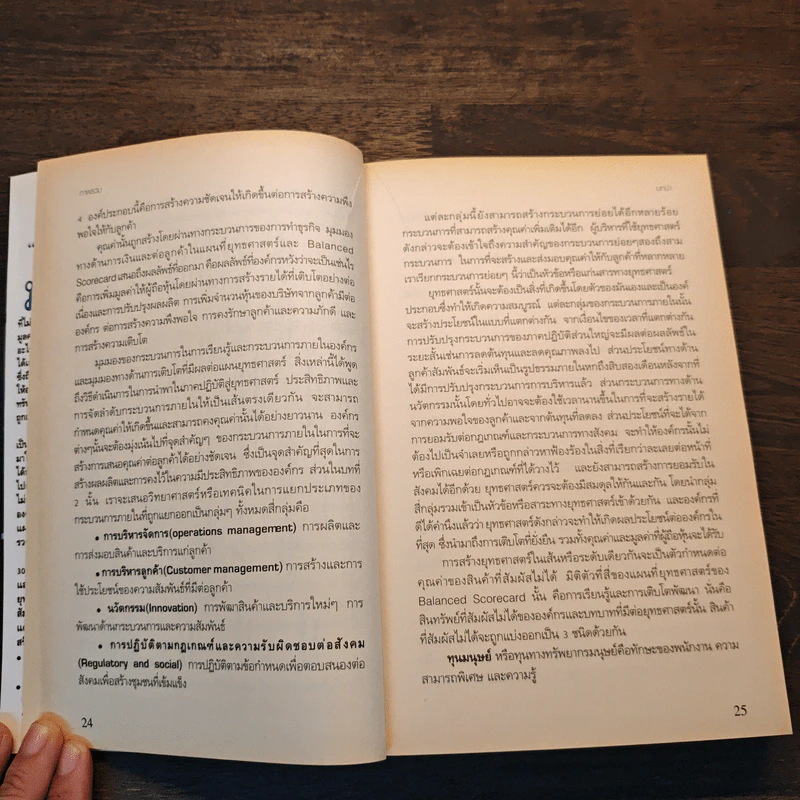 ภาพรวม
4 องค์ประกอบนี้คือการสร้างความชัดเจนให้เกิดขึ้นต่อการสร้างความพึง
พอใจให้กับลูกค้า
คุณค่านั้นถูกสร้างโดยผ่านทางกระบวนการของการทำธุรกิจ มุมมอง
ทางด้านการเงินและต่อลูกค้าในแผนที่ยุทธศาสตร์และ Balanced
Scorecard เสนอถึงผลลัพธ์ที่ออกมา คือผลลัพธ์ที่องค์กรหวังว่าจะเป็นเช่นไร
คือการเพิ่มมูลค่าให้ผู้ถือหุ้นโดยผ่านทางการสร้างรายได้ที่เติบโตอย่างต่อ
เนื่องและการปรับปรุงผลผลิต การเพิ่มจำนวนหุ้นของบริษัทจากลูกค้ามีต่อ
องค์กร ต่อการสร้างความพึงพอใจ การคงรักษาลูกค้าและความภักดี และ
การสร้างความเติบโต
มุมมองของกระบวนการในการเรียนรู้และกระบวนการภายในองค์กร
และมุมมองทางด้านการเติบโตที่มีผลต่อแผนยุทธศาสตร์ สิ่งเหล่านี้ได้พูด
ถึงวิธีดำเนินการในการนำพาในภาคปฏิบัติสู่ยุทธศาสตร์ ประสิทธิภาพและ
การจัดลำดับกระบวนการภายในให้เป็นเส้นตรงเดียวกัน จะสามารถ
กำหนดคุณค่าให้เกิดขึ้นและสามารถคงคุณค่านั้นได้อย่างยาวนาน องค์กร
ต่างๆนั้นจะต้องมุ่งเน้นไปที่จุดสำคัญๆ ของกระบวนการภายในในการที่จะ
สร้างการเสนอคุณค่าต่อลูกค้าได้อย่างชัดเจน ซึ่งเป็นจุดสำคัญที่สุดในการ
สร้างผลผลิตและการคงไว้ในความมีประสิทธิภาพขององค์กร ส่วนในบทที่
2 นั้น เราจะเสนอวิทยาศาสตร์หรือเทคนิคในการแยกประเภทของ
กระบวนการภายในที่ถูกแยกออกเป็นกลุ่มๆ ทั้งหมดสี่กลุ่มคือ
• การบริหารจัดการ(operations management) การผลิตและ
การส่งมอบสินค้าและบริการแก่ลูกค้า
• การบริหารลูกค้า(Customer management) การสร้างและการ
ใช้ประโยชน์ของความสัมพันธ์ที่มีต่อลูกค้า
• นวัตกรรม(Innovation) การพัฒาสินค้าและบริการใหม่ๆ การ
พัฒนาด้านกระบวนการและความสัมพันธ์
• การปฏิบัติตามกฎเกณฑ์และความรับผิดชอบต่อสังคม
(Regulatory and social) การปฏิบัติตามข้อกำหนดเพื่อตอบสนองต่อ
สังคมเพื่อสร้างชุมชนที่เข้มแข็ง
24
บทนำ
แต่ละกลุ่มนี้ยังสามารถสร้างกระบวนการย่อยได้อีกหลายร้อย
กระบวนการที่สามารถสร้างคุณค่าเพิ่มเติมได้อีก ผู้บริหารที่ใช้ยุทธศาสตร์
ดังกล่าวจะต้องเข้าใจถึงความสำคัญของกระบวนการย่อยๆสองถึงสาม
กระบวนการ ในการที่จะสร้างและส่งมอบคุณค่าให้กับลูกค้าที่หลากหลาย
เราเรียกกระบวนการย่อยๆ นี้ว่าเป็นหัวข้อหรือแก่นสารทางยุทธศาสตร์
ยุทธศาสตร์นั้นจะต้องเป็นสิ่งที่เกิดขึ้นโดยตัวของมันเองและเป็นองค์
ประกอบซึ่งทำให้เกิดความสมบูรณ์ แต่ละกลุ่มของกระบวนการภายในนั้น
จะสร้างประโยชน์ในแบบที่แตกต่างกัน จากเงื่อนไขของเวลาที่แตกต่างกัน
การปรับปรุงกระบวนการของภาคปฏิบัติส่วนใหญ่จะมีผลต่อผลลัพธ์ใน
ระยะสั้นเช่นการลดต้นทุนและลดคุณภาพลงไป ส่วนประโยชน์ทางด้าน
ลูกค้าสัมพันธ์จะเริ่มเห็นเป็นรูปธรรมภายในหกถึงสิบสองเดือนหลังจากที่
ได้มีการปรับปรุงกระบวนการการบริหารแล้ว ส่วนกระบวนการทางด้าน
นวัตกรรมนั้นโดยทั่วไปอาจจะต้องใช้เวลานานขึ้นในการที่จะสร้างรายได้
จากความพอใจของลูกค้าและจากต้นทุนที่ลดลง ส่วนประโยชน์ที่จะได้จาก
การยอมรับในต่อกฎเกณฑ์และกระบวนการทางสังคม จะทำให้องค์กรนั้นไม่
ต้องไปเป็นจำเลยหรือถูกกล่าวหาฟ้องร้องในสิ่งที่เรียกว่าละเลยต่อหน้าที่
หรือเพิกเฉยต่อกฎเกณฑ์ที่ได้วางไว้ และยังสามารถสร้างการยอมรับใน
สังคมได้อีกด้วย ยุทธศาสตร์ควรจะต้องมีสมดุลให้กันและกัน โดยนำกลุ่ม
สี่กลุ่มรวมเข้าเป็นหัวข้อหรือสาระทางยุทธศาสตร์เข้าด้วยกัน และองค์กรที่
ดีได้คำนึงแล้วว่า ยุทธศาสตร์ดังกล่าวจะทำให้เกิดผลประโยชน์ต่อองค์กรใน
ที่สุด ซึ่งนำมาถึงการเติบโตที่ยั่งยืน รวมทั้งคุณค่าและมูลค่าที่ผู้ถือหุ้นจะได้รับ
การสร้างยุทธศาสตร์ในเส้นหรือระดับเดียวกันจะเป็นตัวกำหนดต่อ
คุณค่าของสินค้าที่สัมผัสไม่ได้ มิติตัวที่สี่ของแผนที่ยุทธศาสตร์ของ
Balanced Scorecard นั้น คือการเรียนรู้และการเติบโตพัฒนา นั่นคือ
สินทรัพย์ที่สัมผัสไม่ได้ขององค์กรและบทบาทที่มีต่อยุทธศาสตร์นั้น สินค้า
ที่สัมผัสไม่ได้จะถูกแบ่งออกเป็น 3 ชนิดด้วยกัน
ทุนมนุษย์ หรือทุนทางทรัพยากรมนุษย์คือทักษะของพนักงาน ความ
สามารถพิเศษ และความรู้
25